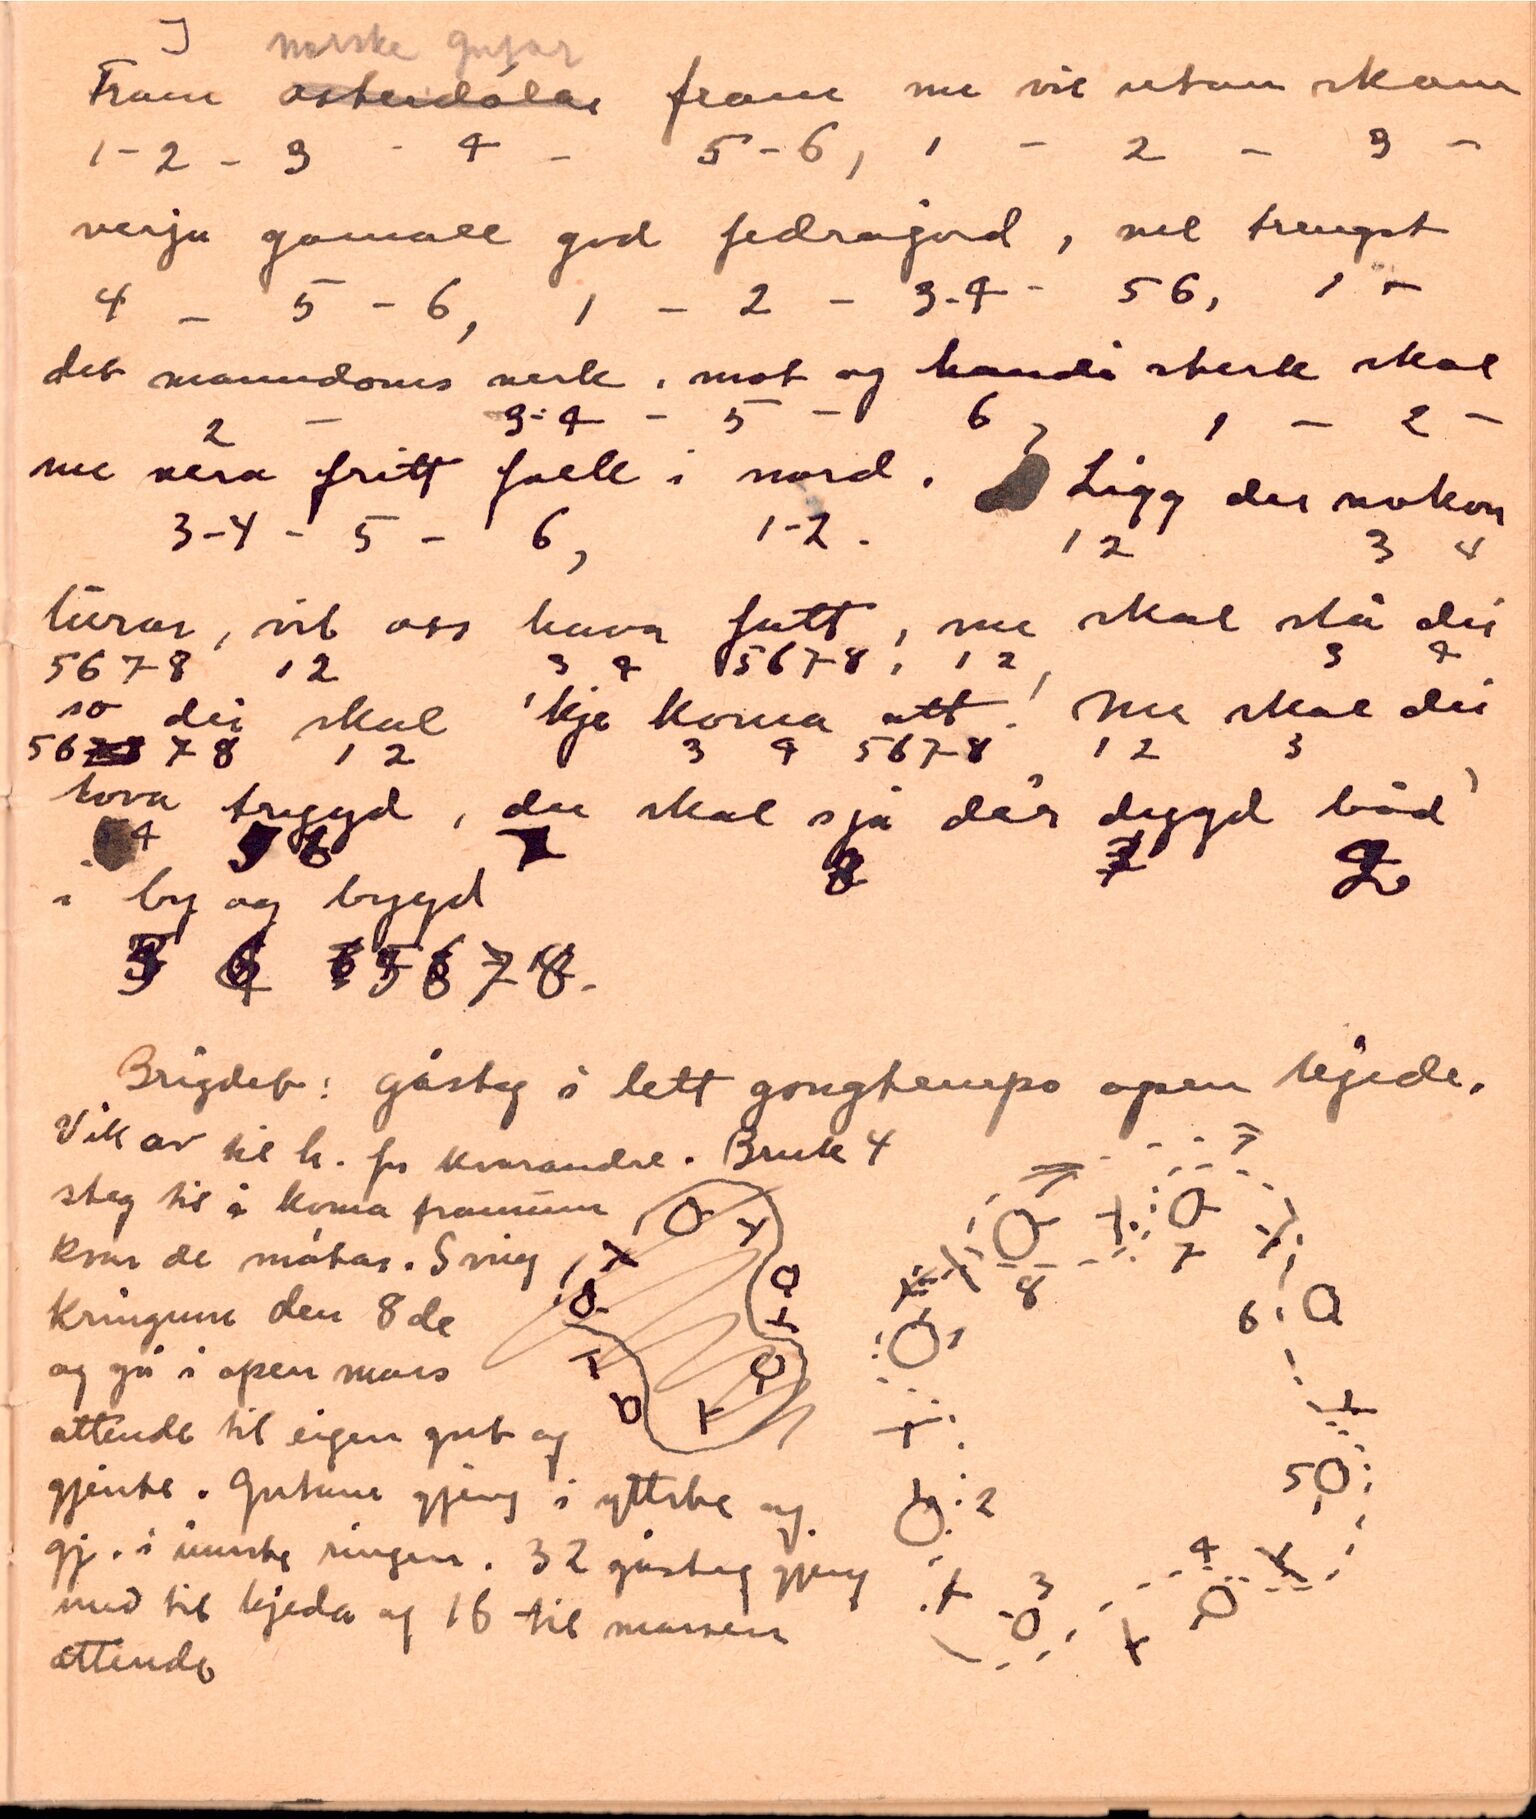 I norske gutar
Fram austendølar fram me vil utan skam
1 - 2 - 3 - 4 - 5 - 6, 1 - 2 - 3 -
verja gamall god fedrajord, vel trengst
4 - 5 - 6, 1 - 2 - 3-4 - 5 6, 1 -
det manndoms verk, mot og handi sterk skal
2 - 3-4 - 5 - 6, 1 - 2 -
me vera fritt folk i nord. Ligg der nokon
3-4 - 5 - 6, 1-2. 1 2 3 4
lurar, vil oss hava fatt, me skal slå dei
5 6 7 8 1 2 3 4 5 6 7 8, 1 2, 3 4
so dei skal 'kje koma att! Me skal dei
5 6 7 8 1 2 3 4 5 6 7 8 1 2 3
lova trygd, du skal sjå dår dygd båd'
4 5 6 1 2
i by og bygd
5 6 7 8.
Brigdet: gåsteg i lett gongtempo open kjede.
Vik av til h. for kvarandre. Bruk 4
steg til å koma framum
kvar de møtar. Sving
kringum den 8de
og gå i open mars
attende til eigen gut og
gjente. Gutane gjeng i ytste og
gj. i inste ringen. 32 gåsteg gjeng
med til kjeda og 16 til marsen
attende
8 7
6
1
5
2
4
3